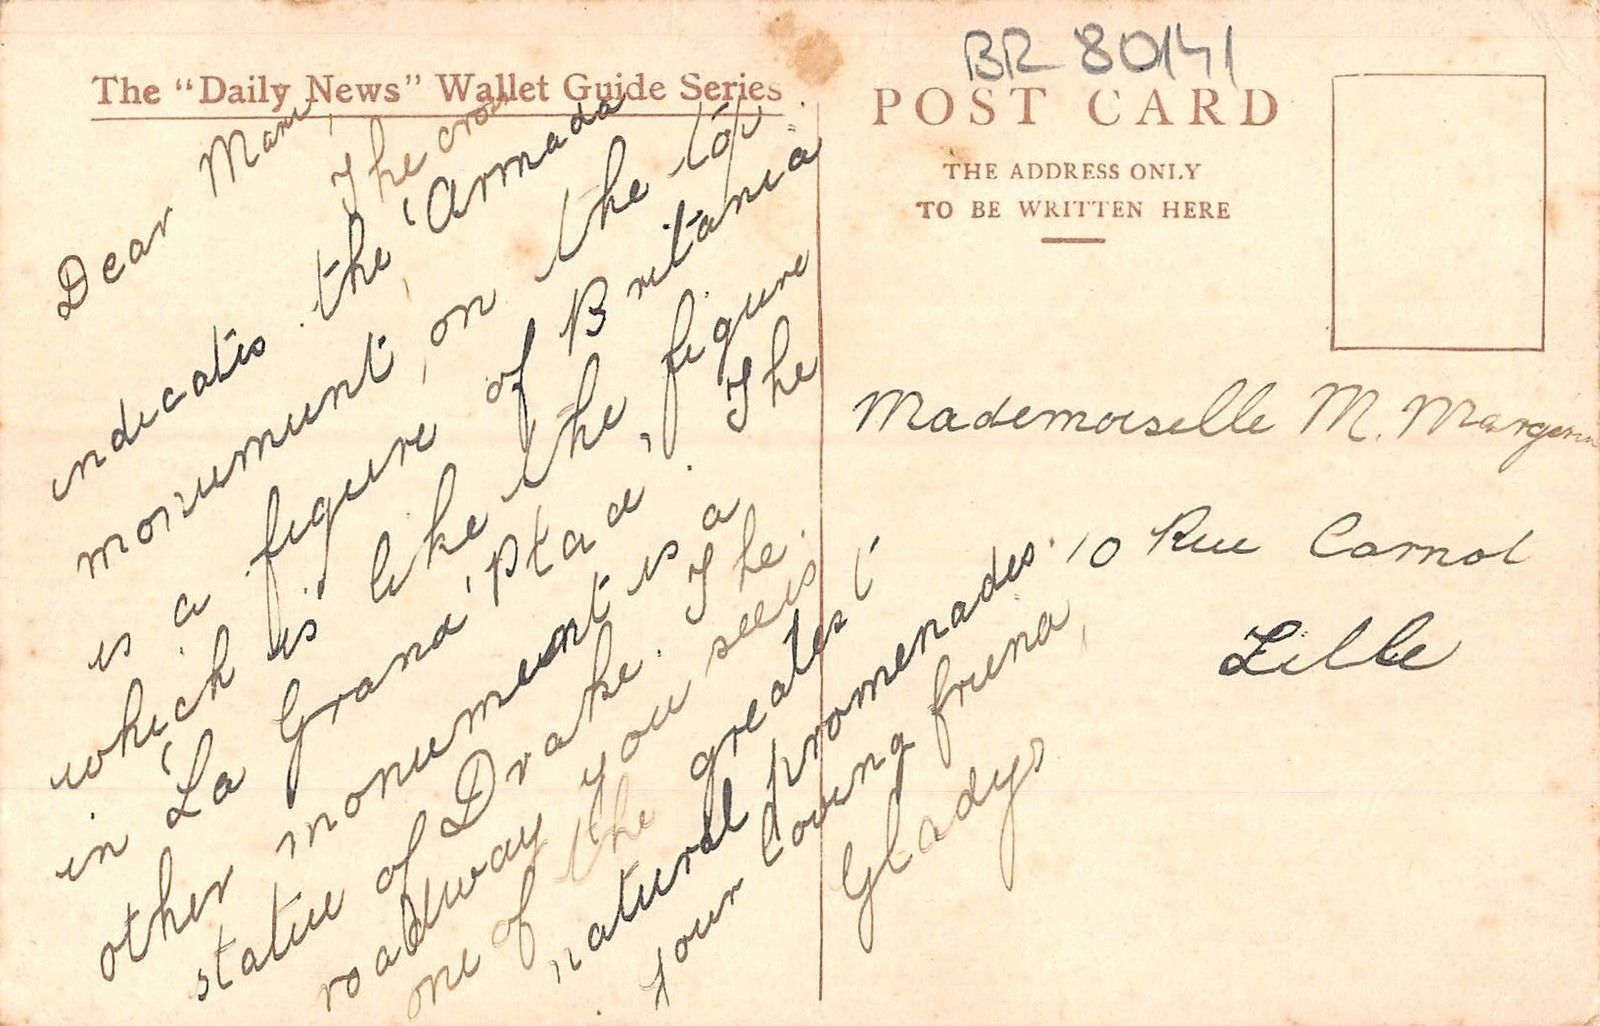 BR 80141
The "Daily News" Wallet Guide Series
POST CARD
THE ADDRESS ONLY
TO BE WRITTEN HERE
Dear
The cross
indicates the 'Armada
monument, on the top
is a figure of Britania
which is like the figure
in 'La Grand' Place'. The
other monument is a
statue of Drake. The
roadway you see is
one of the greatest
natural promenades.
your loving friend,
Gladys
Mademoiselle M.
10 Rue Carnot
Lille